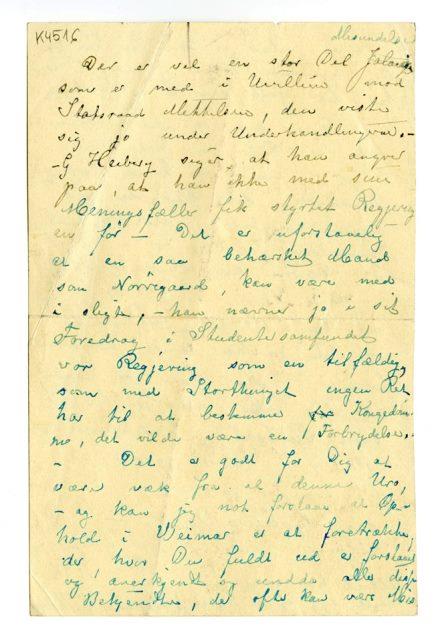 K4516
Misundelse
Der er vel en stor Del Jalousi
som er med i Uvillien mod
Statsraad Michelsen, den viste
sig jo under Underhandlingerne. -
- G Heiberg siger, at han angrer
paa, at han ikke med sine
Meningsfæller fik styrtet Regjering
en før - Det er uforstaaelig
at en saa behærsket Mand
som Nörregaard, kan være med
i sligt, - han nævner jo i sit
Foredrag i Studentersamfundet
vor Regjering som en tilfældig,
som med Storthinget ingen Ret
har til at bestemme Kongedöm-
me, det vilde være en Forbrydelse. -
- Det er godt for Dig at
være væk fra al denne Uro,
- og kan jeg nok forstaa at Op-
hold i Weimar er at foretrække,
der, hvor Du fuldt ud er forstaaet
og anerkjendt og undda alle disse
Bekjendte, de ofte kan være Mis